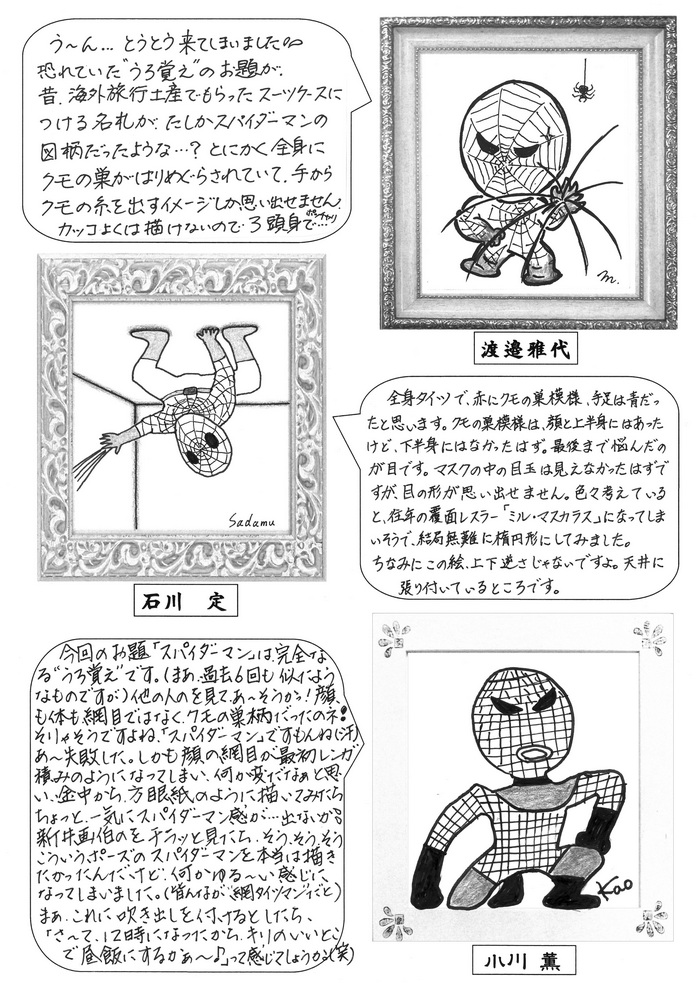 う〜ん… とうとう来てしまいました
恐れていた"うろ覚え"のお題が。
昔、海外旅行土産でもらったスーツケースに
つける名札が、たしかスパイダーマンの
図柄だったような…？とにかく全身に
クモの巣がはりめぐらされていて、手から
クモの糸を出すイメージしか思い出せません。
カッコよくは描けないので3頭身で…
ポッチャリ
m.
渡邉雅代
Sadamu
石川 定
全身タイツで、赤にクモの巣模様、手足は青だっ
たと思います。クモの巣模様は、顔と上半身にはあった
けど、下半身にはなかったはず。最後まで悩んだの
が目です。マスクの中の目玉は見えなかったはずで
すが、目の形が思い出せません。色々考えている
と、往年の覆面レスラー「ミル・マスカラス」になってしま
いそうで、結局無難に楕円形にしてみました。
ちなみにこの絵、上下逆さじゃないですよ。天井に
張り付いているところです。
今回のお題「スパイダーマン」は、完全な
る"うろ覚え"です。(まあ、過去6回も似たような
なものですが)他の人のを見て、あ〜そうか！顔
も体も網目ではなく、クモの巣柄だったのネ！
そりゃそうですよね、「スパイダーマン」ですもんね(汗)
あ〜失敗した。しかも顔の網目が最初レンガ
積みのようになってしまい、何か変だなぁと思
い、途中から、方眼紙のように描いてみたら
ちょっと、一気にスパイダーマン感が…出ないがる
新井画伯のをチラッと見たら、そう、そう、そう
こういうポーズのスパイダーマンを本当は描き
たかったんだ、けど、何かゆる〜い感じに
なってしまいました。(皆んなが、網タイツマンだと)
まあ、これに吹き出しを付けるとしたら、
「さ〜て、12時になったから、キリのいいとこ
で昼飯にするかぁ〜♪」って感じでしょうか(笑)
Kao
小川 薫